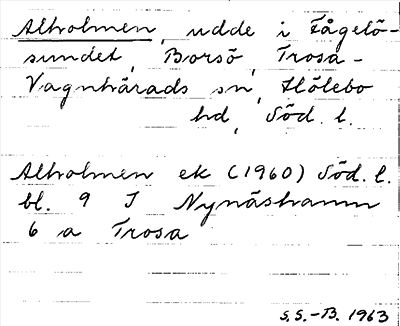 Alholmen, udde i Fågelö-
sundet, Borsö, Trosa-
Vagnhärads sn, Hölebo
hd, Söd. l.
Alholmen ek (1960) Söd. l.
bl. 9 I Nynäshamn
6 a Trosa
S.S.-B. 1963